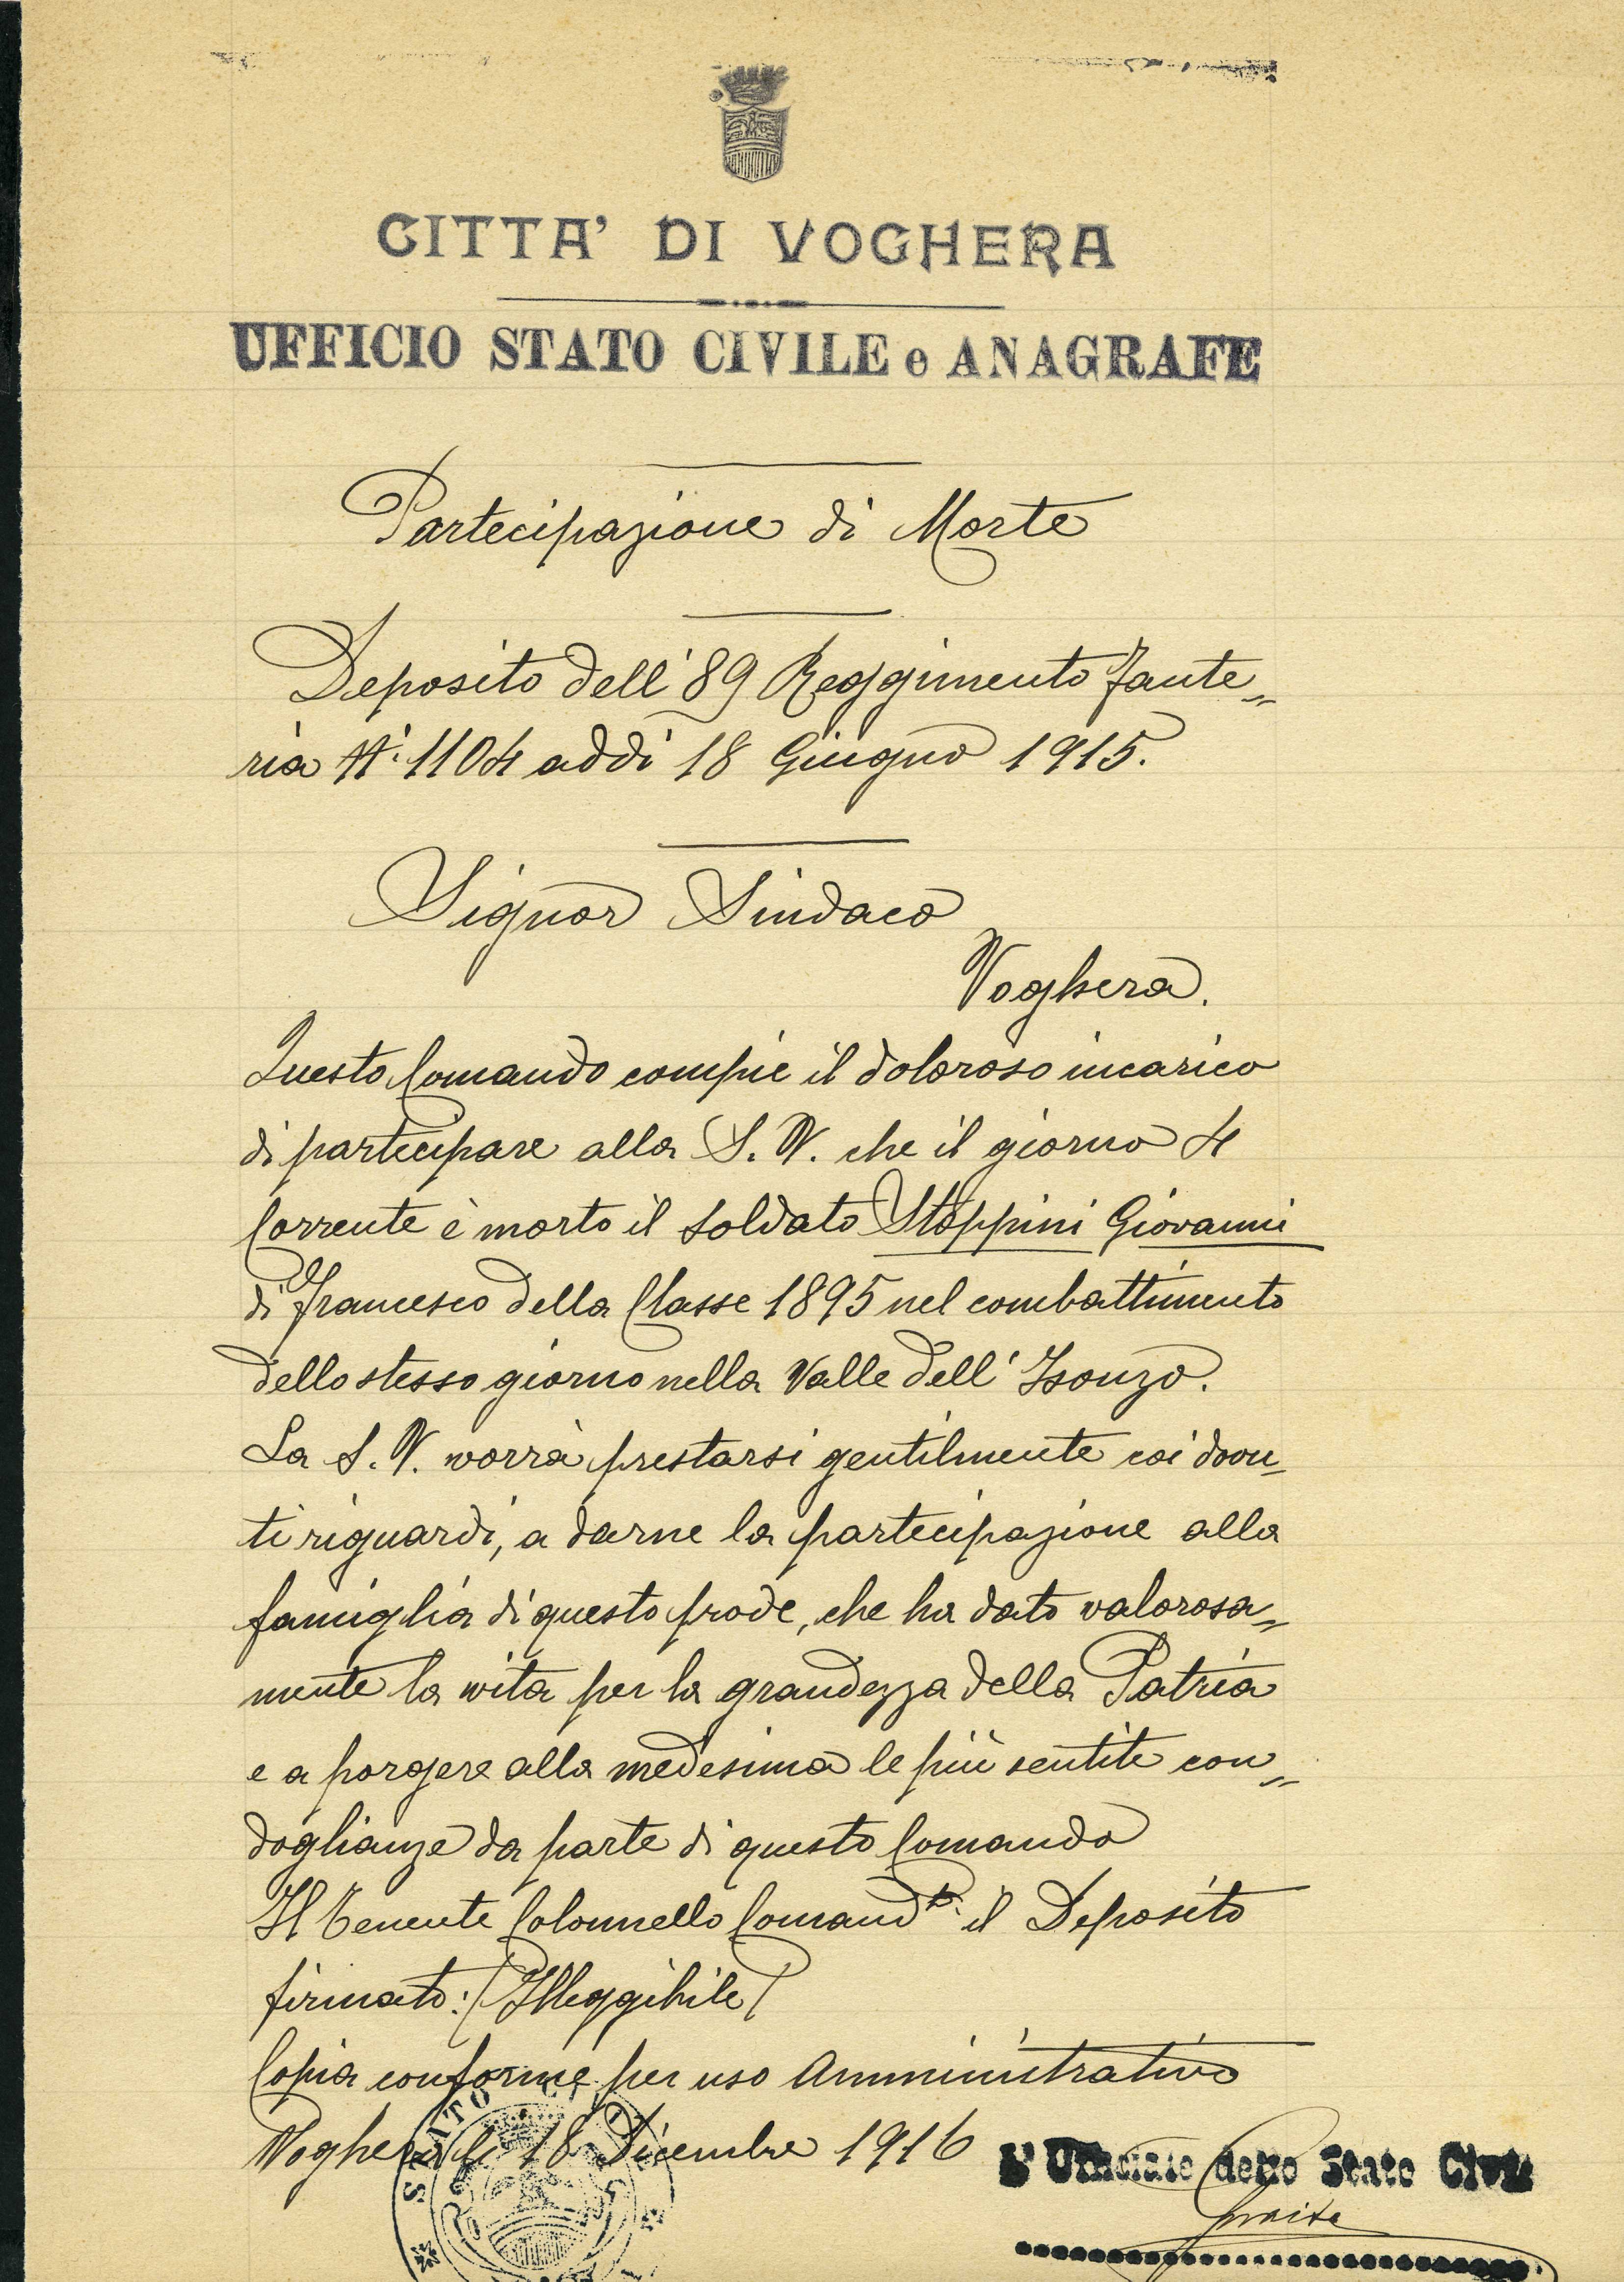 CITTA' DI VOGHERA
UFFICIO STATO CIVILE e ANAGRAFE
Partecipazione di Morte
Deposito dell' 89 Reggimento Fante„
ria N. 1104 addì 18 Giugno 1915.
Signor Sindaco
Voghera.
Questo Comando compie il doloroso incarico
di partecipare alla S. V. che il giorno 4
Corrente è morto il soldato Stoppini Giovanni
di Francesco della Classe 1895 nel combattimento
dello stesso giorno nella Valle dell' Isonzo.
La S. V. vorrà prestarsi gentilmente coi dovu„
ti riguardi, a darne la partecipazione alla
famiglia di questo prode, che ha dato valorosa„
mente la vita per la grandezza della Patria
e a porgere alla medesima le più sentite con„
doglianze da parte di questo Comando
Il Tenente Colonnello Comandte. il Deposito
firmato: (Illeggibile)
Copia conforme per uso Amministrativo
Voghera li 18 Dicembre 1916
L'Ufficiale dello Stato Civile
STATO CI